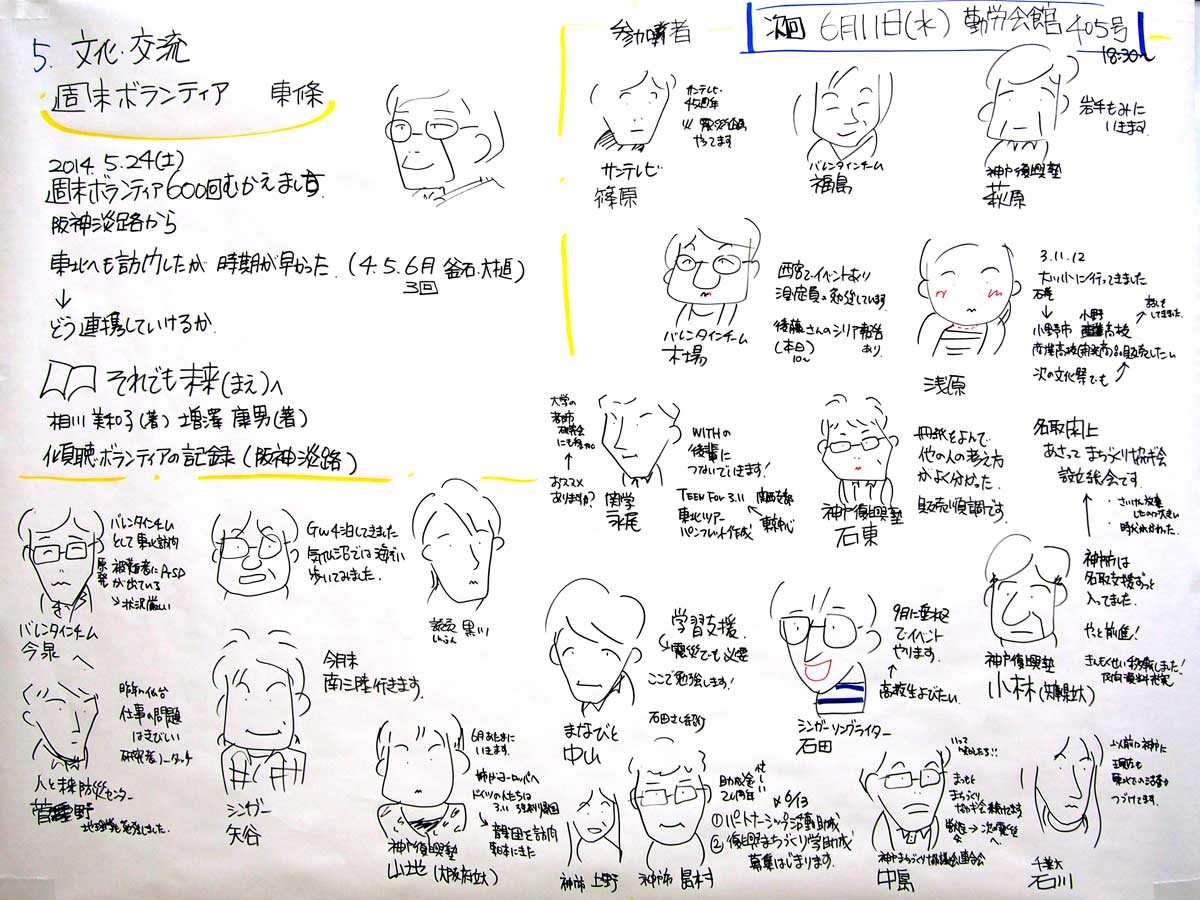 5. 文化・交流
週末ボランティア 東條
2014. 5.24(土)
週末ボランティア600回むかえます
阪神淡路から
東北へも訪問したが 時期が早かった. (4.5.6月 釜石.大槌)
3回
↓
どう連携していけるか
それでも未来(まえ)へ
相川 美和子(著) 増澤 康男(著)
傾聴ボランティアの記録 (阪神淡路)
参加者
次回 6月11日(水) 勤労会館 405号
18:30〜
サンテレビ
45周年
やってます
サンテレビ
篠原
バレンタインチーム
福島
岩手もみに
いきます
神戸復興塾
萩原
西宮でイベントあり
勉強しています
後藤さんのシリア報告
(本日) あり
10〜
バレンタインチーム
木場
3.11.12
行ってきました
石巻
↓
小野市 高校
次の文化祭でも
浅原
大学の
おススメ
ありますか?
WITHの
後輩に
つないでいきます!
TEEN FOR 3.11 関西支部
東北ツアー
パンフレット作成
東京中心
関学
永尾
冊紙をよんで
他の人の考え方
がよく分かった.
販売順調です.
神戸復興塾
石東
名取閖上
あさって まちづくり協ギ会
設立総会です.
神戸市は
名取支援ずっと
入ってました.
やっと前進!
神戸復興塾
小林(兵庫県立大)
バレンタインチーム
として東北訪問
原発
被災者にPTSD
が出ている
→状況厳しい
バレンタインチーム
今泉
GW4泊してきました
気仙沼では海ぞい
歩いてみました.
読売 黒川
しんぶん
学習支援.
震災でも必要
ここで勉強します!
石田さん紹介
まなびと
中山
9月に垂水区
でイベント
やります.
↑
高校生よびたい
シンガーソングライター
石田
昨年の仙台
仕事の問題
はきびしい
研究者ノータッチ
人と未来防災センター
菅野
今月末
南三陸行きます.
シンガー
矢谷
6月あたまに
いきます.
姉がヨーロッパへ
ドイツの人たちは
韓国を訪問
神戸復興塾
山地(大阪府立大)
神戸市 上野
助成金
20周年
6/13
①パートナーシップ活動助成
②復興まちづくり学助成
募集はじまります.
神戸市 島村
もっと
まちづくり
協ギ会続けてます
神戸まちづくり協議会連合会
中島
以前から神戸に
つづけてます.
千葉大
石川